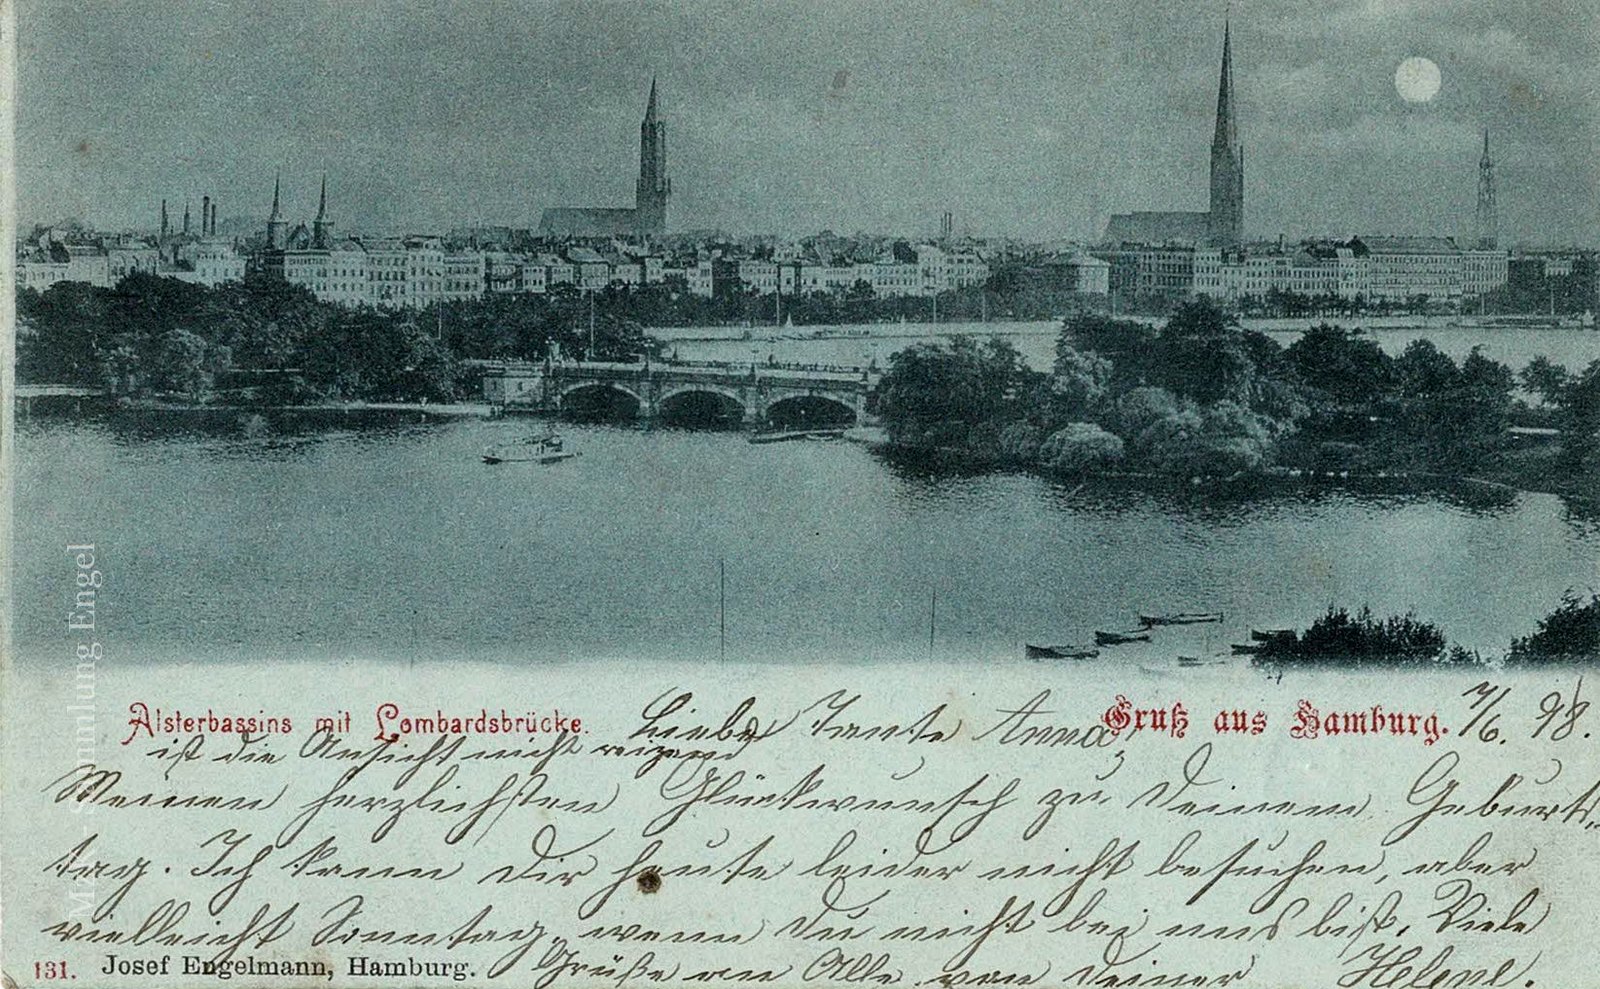 Alsterbassins mit Lombardsbrücke.
Gruß aus Hamburg. 7/6. 98.
Liebe Tante Anna,
ist die Ansicht nicht reizend
Meinen herzlichsten Glückwunsch zu Deinem Geburts-
tag. Ich kann Dir heute leider nicht besuchen, aber
vielleicht Sonntag, wenn Du nicht bei uns bist. Viele
Grüße an Alle von Deiner Helene.
131. Josef Engelmann, Hamburg.
Sammlung Engel